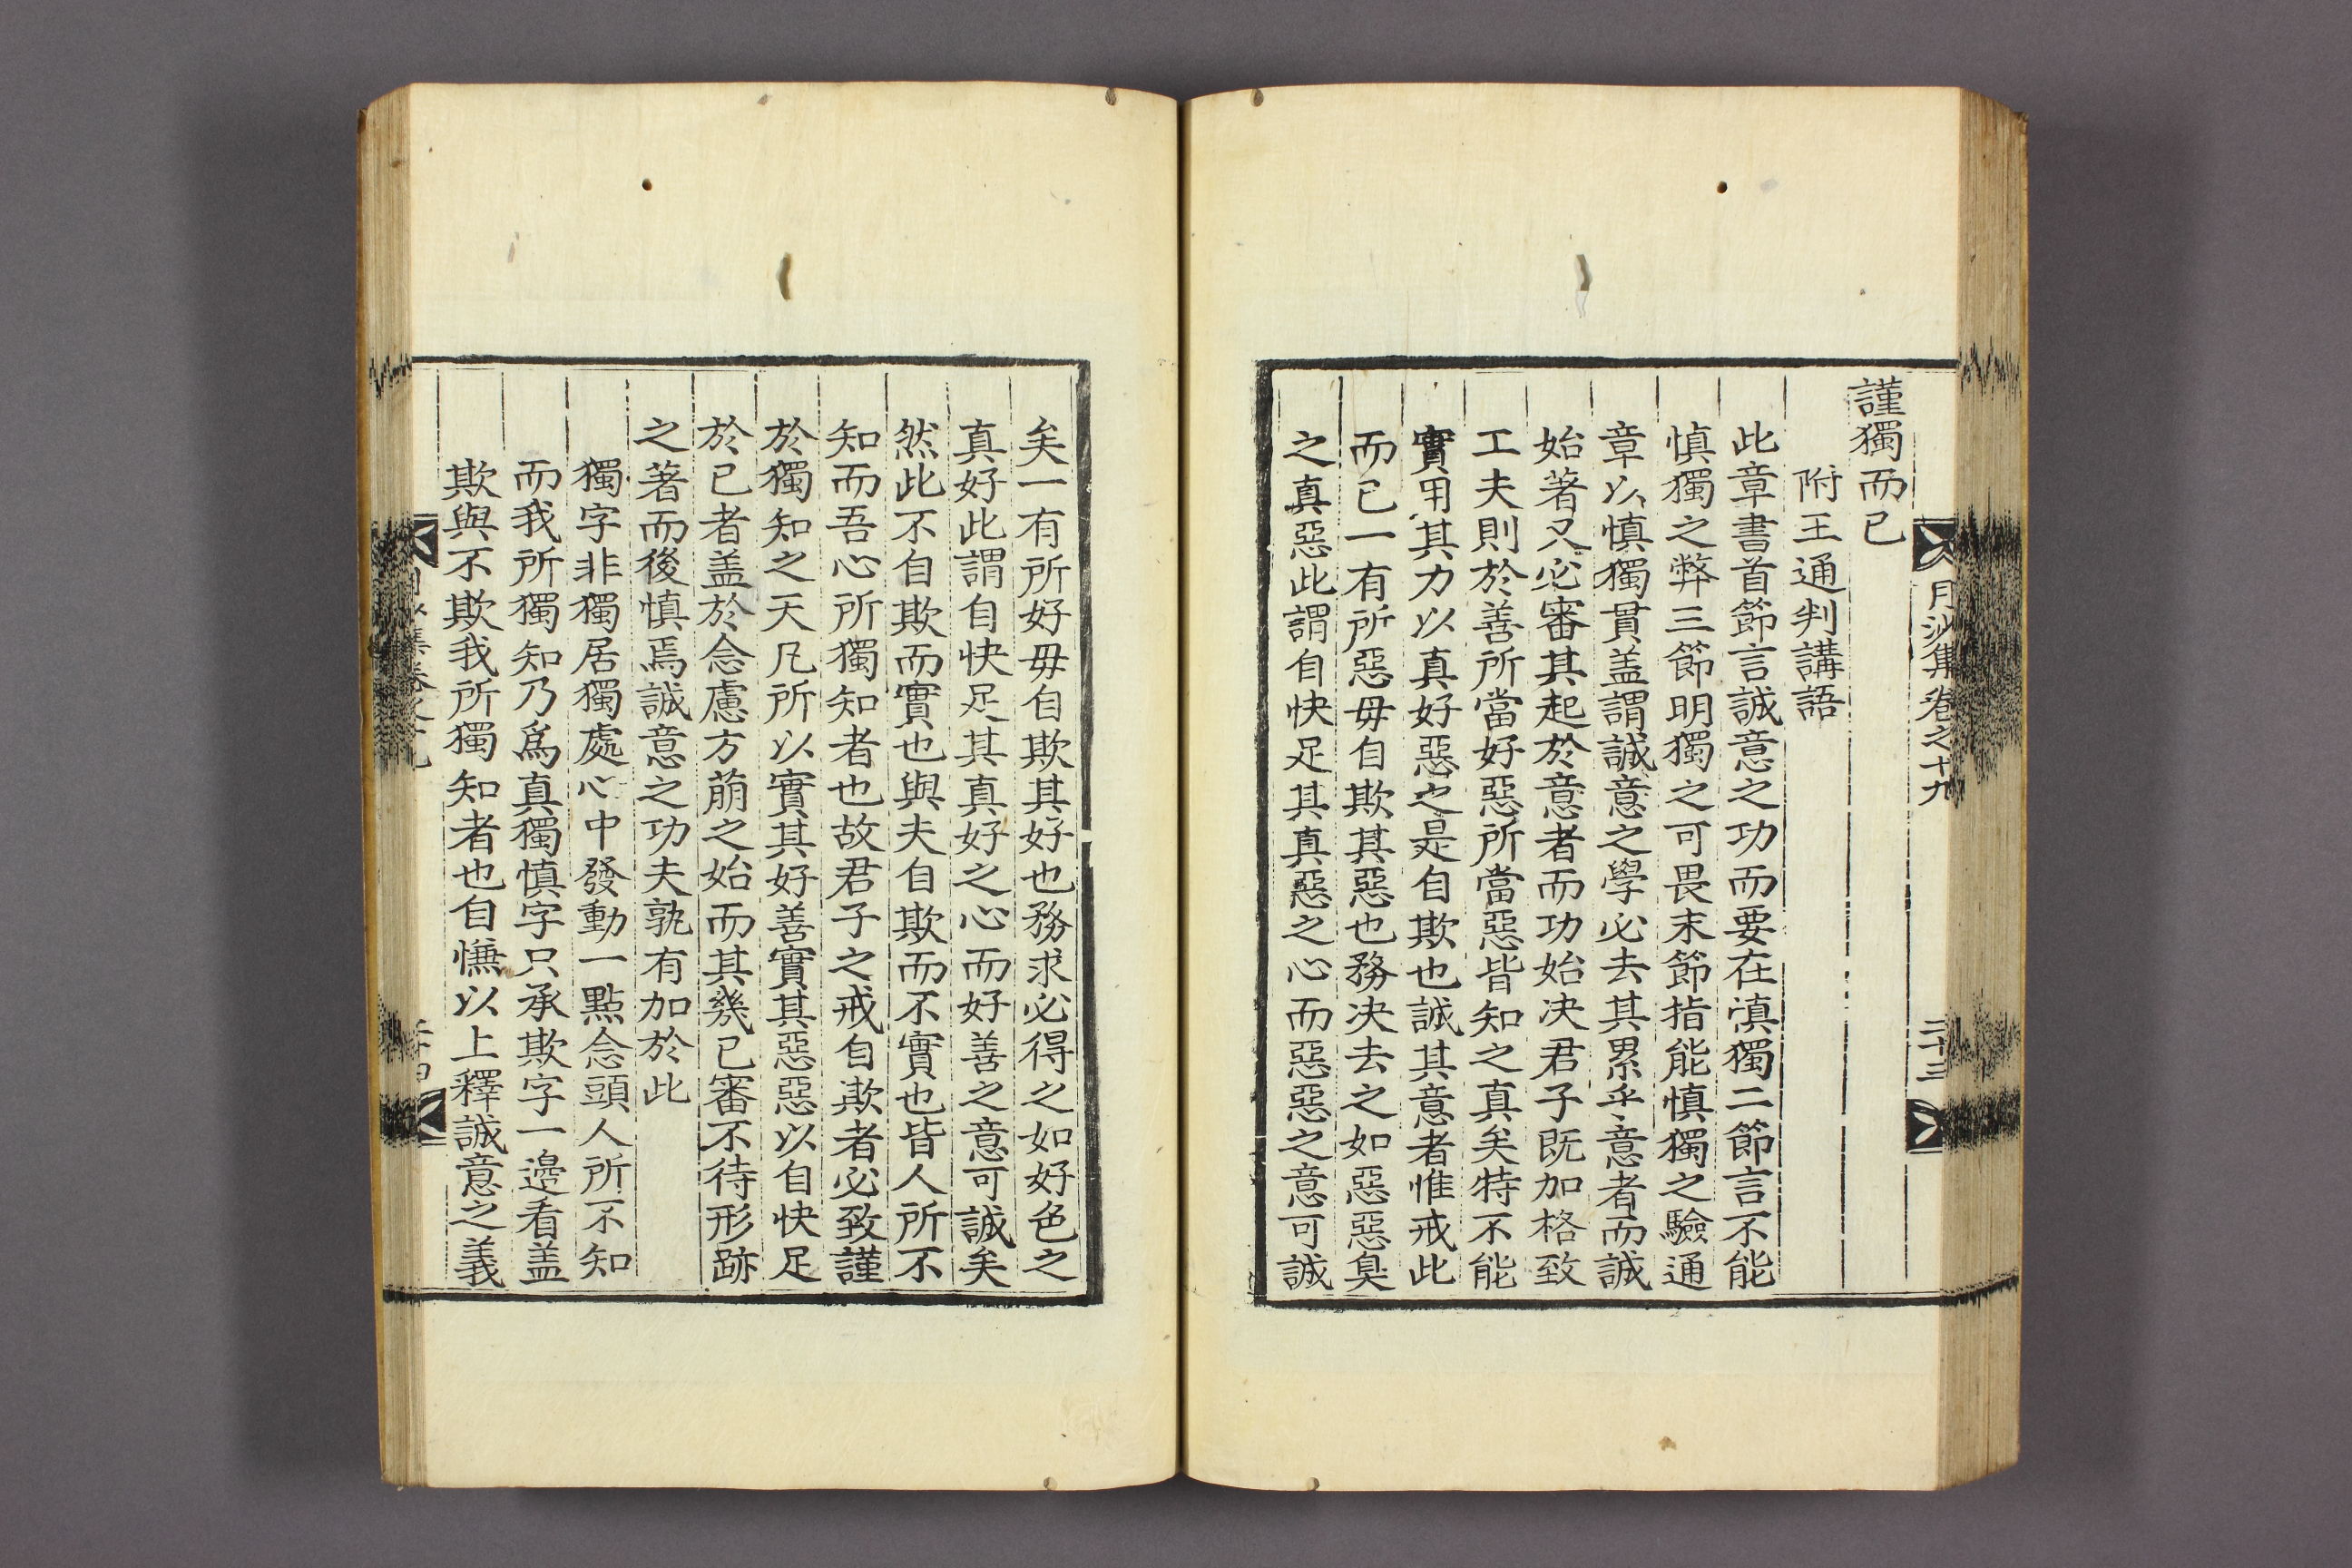 月沙集卷之十九
二十三
謹獨而已
附王通判講語
此章書首節言誠意之功而要在慎獨二節言不能
慎獨之弊三節明獨之可畏末節指能慎獨之驗通
章以慎獨貫盖謂誠意之學必去其累乎意者而誠
始著又必審其起於意者而功始决君子既加格致
工夫則於善所當好惡所當惡皆知之真矣特不能
實用其力以真好惡之是自欺也誠其意者惟戒此
而已一有所惡毋自欺其惡也務决去之如惡惡臭
之真惡此謂自快足其真惡之心而惡惡之意可誠
矣一有所好毋自欺其好也務求必得之如好色之
真好此謂自快足其真好之心而好善之意可誠矣
然此不自欺而實也與夫自欺而不實也皆人所不
知而吾心所獨知者也故君子之戒自欺者必致謹
於獨知之天凡所以實其好善實其惡惡以自快足
於已者盖於念慮方萠之始而其幾已審不待形跡
之著而後慎焉誠意之功夫孰有加於此
獨字非獨居獨處心中發動一點念頭人所不知
而我所獨知乃爲真獨慎字只承欺字一邊看盖
欺與不欺我所獨知者也自慊以上釋誠意之義